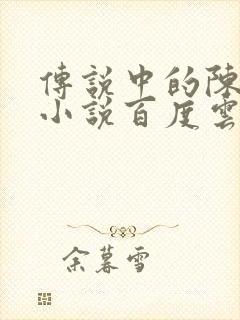 傳說中的陳
小說百度雲
余暮雪